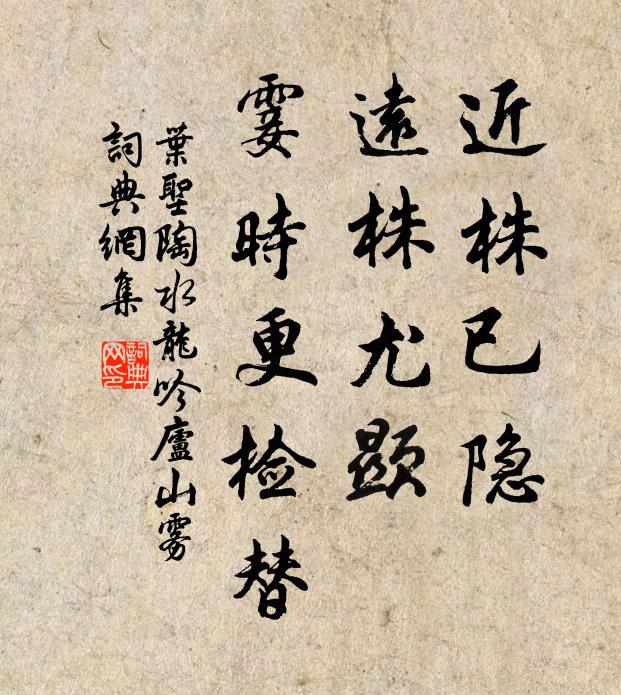 近株已隐
遠株尤顯
霎時更检替
葉聖陶水龍吟廬山雾
詞典網集
詞典网印